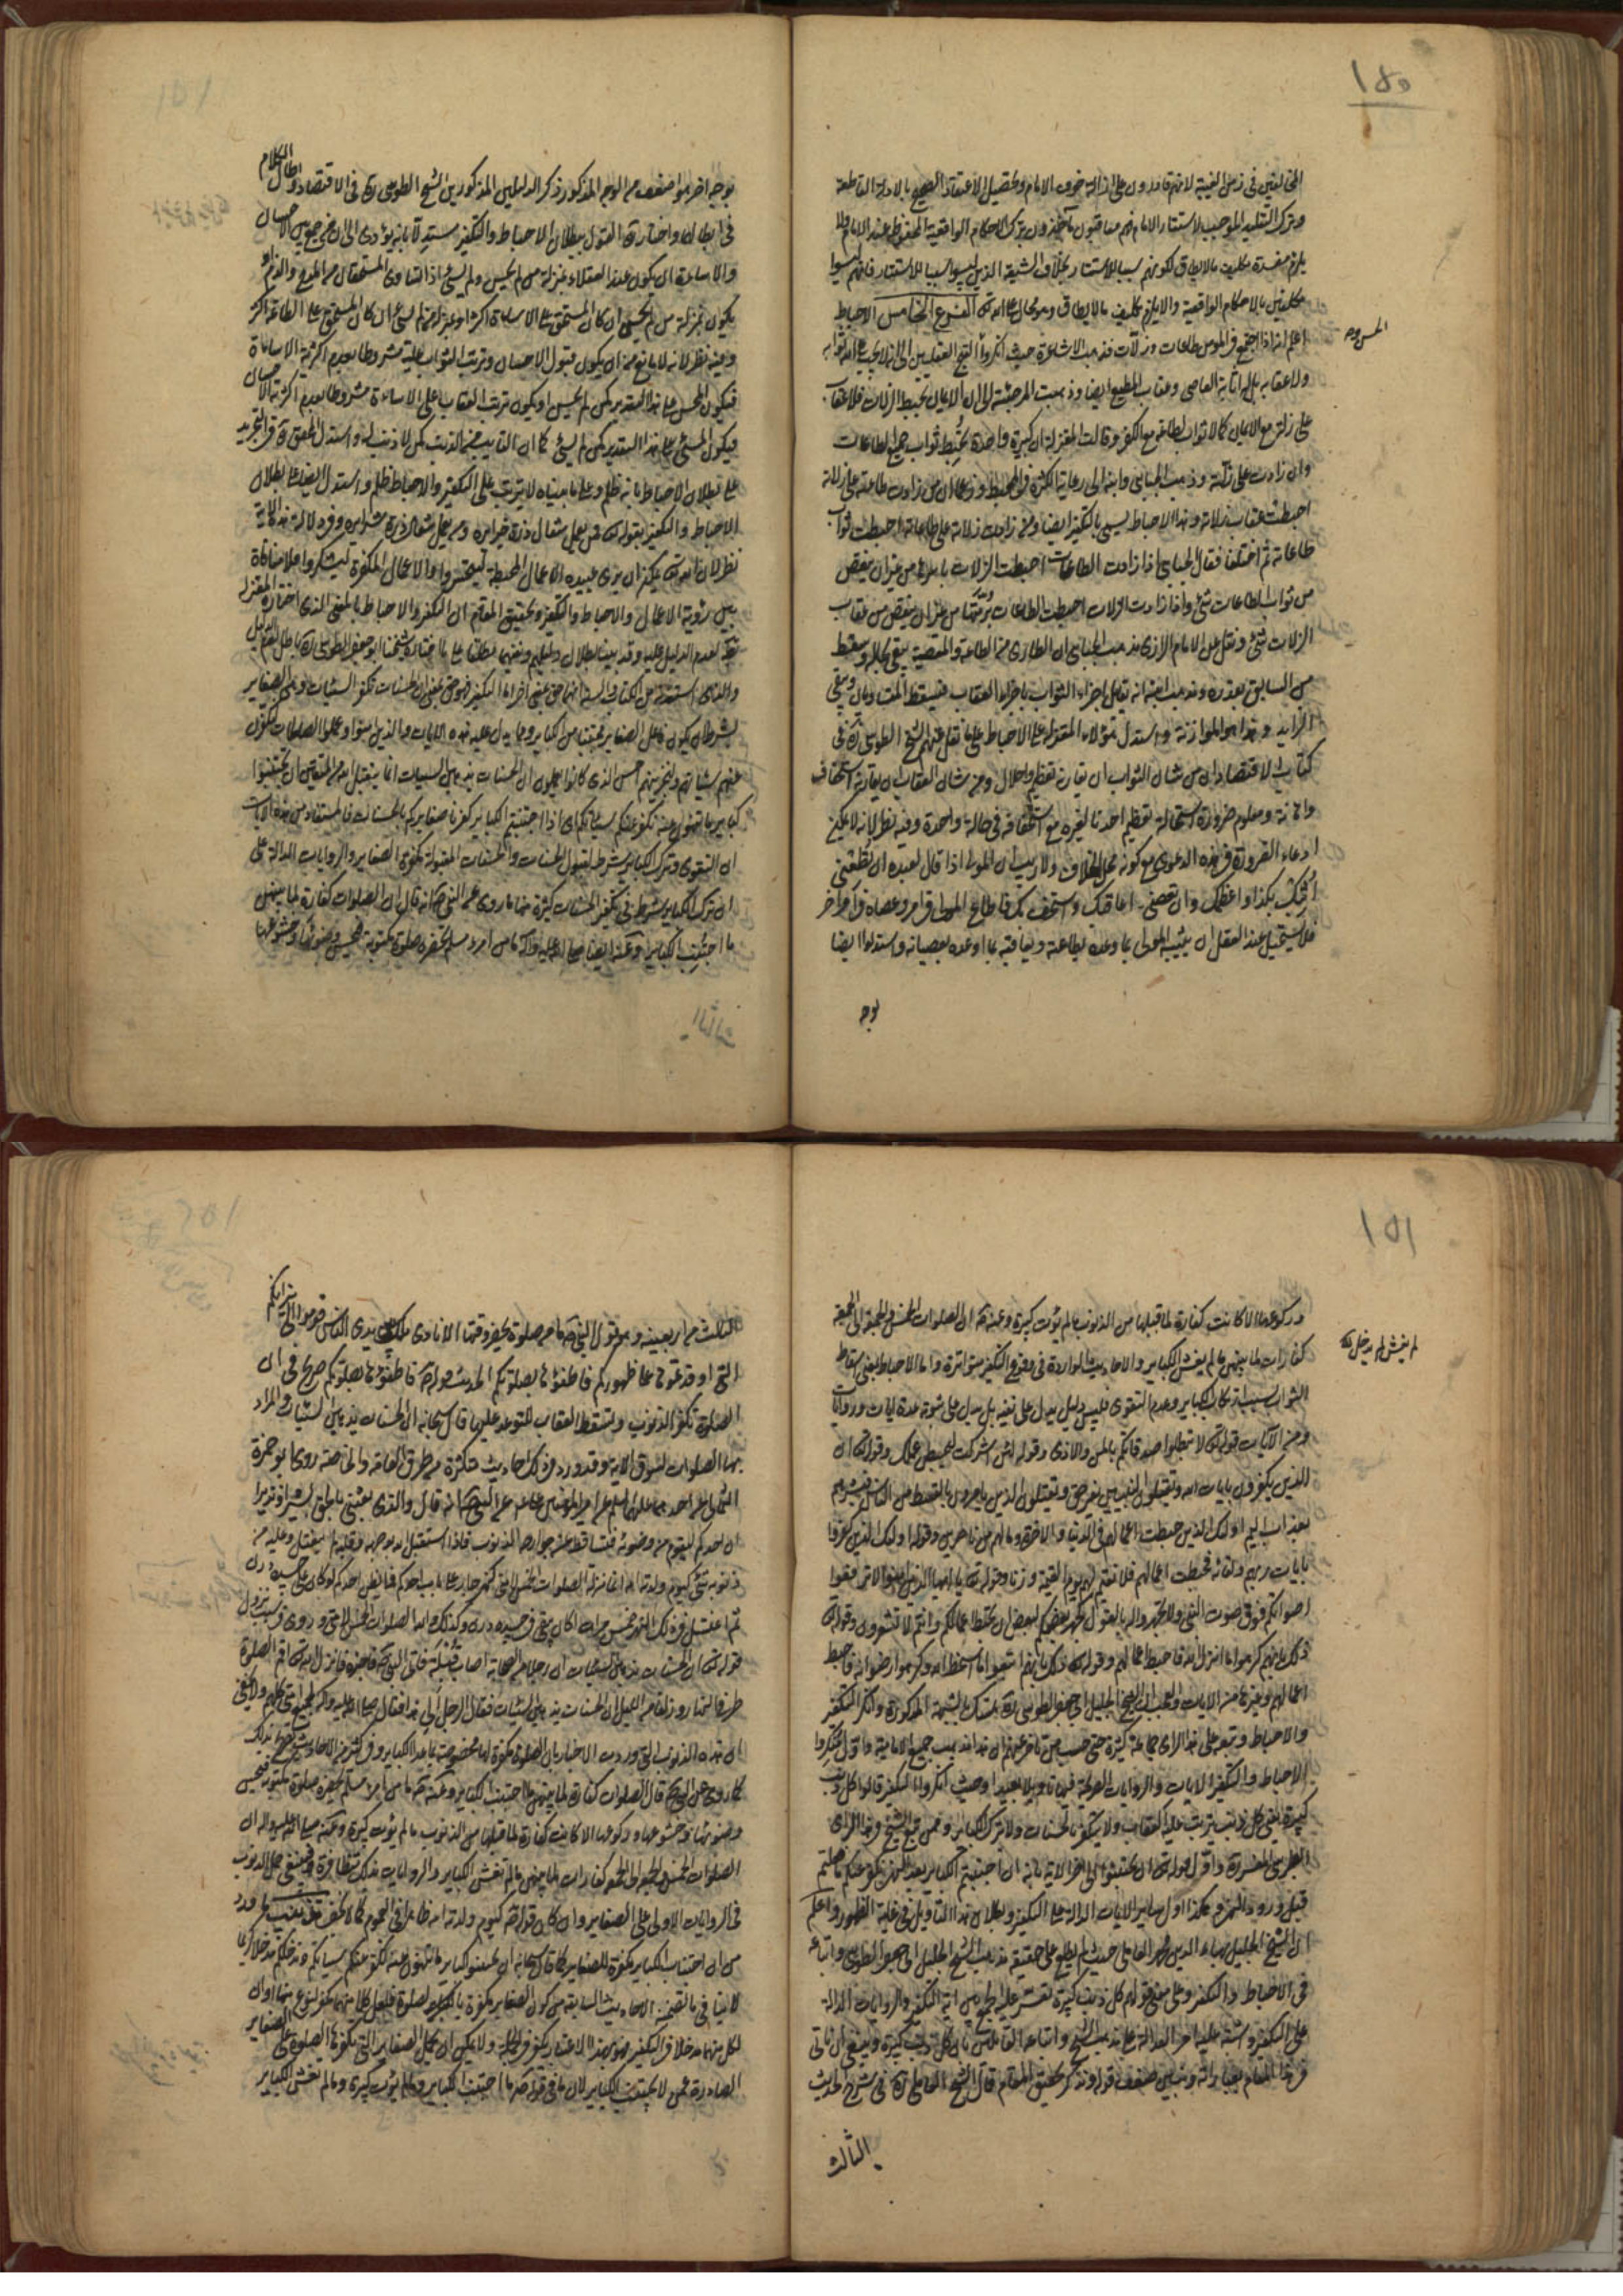 ١٥٠
المخالفين في زمن الغيبة لانهم قادرون على ازالة خوف الامام وتحصيل الاعتقاد الصحيح بالادلة القاطعة
وترك التقليد الموجب لاستتار الامام فهم معاقبون بترك الاحكام الواقعية المحفوظة عند الامام ولا
يلزم مفسدة تكليف ما لا يطاق لكونهم سببا للاستتار بخلاف الشيعة الذين ليسوا سببا للاستتار فانهم ليسوا
مكلفين بالاحكام الواقعية والا يلزم تكليف ما لا يطاق وهو محال على الله تعالى الفرع الخامس الاحباط
اعلم انه اذا اجتمع في المؤمن طاعات وزلات فذهب الاشاعرة حيث انكروا القبح العقليين الى انه لا يجب على الله ثوابه
ولا عقابه بل له اثابة العاصي وعقاب المطيع ايضا وذهبت المرجئة الى ان الايمان يحبط الزلات فلا عقاب
على زلة مع الايمان كما لا ثواب لطاعة مع الكفر وقالت المعتزلة ان كبيرة واحدة تحبط ثواب جميع الطاعات
وان زادت على زلته وذهب الجبائي وابنه الى رعاية الكثرة في المحبط وزعما ان من زادت طاعته على زلاته
احبطت عقاب زلاته وهذا الاحباط يسمى بالتكفير ايضا ومن زادت زلاته على طاعاته احبطت ثواب
طاعاته ثم اختلفا فقال الجبائي اذا زادت الطاعات احبطت الزلات باسرها من غير ان ينقص
من ثواب الطاعات شئ واذا زادت الزلات احبطت الطاعات برمتها من غير ان ينقص من عقاب
الزلات شئ ونقل عن الامام الرازي مذهب الجبائي ان الطاري من الطاعة والمعصية يبقى بحاله ويسقط
من السابق بقدره ومذهب ابنه انه يقابل اجزاء الثواب باجزاء العقاب فيسقط المتساويان ويبقى
الزايد وهذا هو الموازنة واستدل هؤلاء المعتزلة على الاحباط على ما نقل عنهم الشيخ الطوسي ره في
كتاب الاقتصاد ان من شان الثواب ان يقارن تعظيم واجلال ومن شان العقاب ان يقارنه استخفاف
واهانة ومعلوم ضرورة استحالة تعظيم احدنا لغيره مع استخفافه في حالة واحدة وفيه نظر لانه لا يمكن
ادعاء الضرورة في هذه الدعوى مع كونه محل الخلاف ولا ريب ان المولى اذا قال لعبده ان تطعني
اثبتك بكذا واعظمك وان تعصني اعاقبك واستخف بك فاطاع المولى في امر وعصاه في امر اخر
فلا يستحيل عند العقل ان يثيب المولى بما وعده بطاعته ويعاقبه بما اوعده بعصيانه واستدلوا ايضا
بوجه
بوجه اخر هو اضعف من الوجه المذكور ذكر الدليلين المذكورين الشيخ الطوسي ره في الاقتصاد واطال الكلام
في ابطالها واختار ره القول ببطلان الاحباط والتكفير مستدلا بانه يؤدي الى ان من جمع بين الاحسان
والاساءة ان يكون عند العقلاء بمنزلة من لم يحسن ولم يسئ اذا تساوى المستحقان من المدح والذم او
يكون بمنزلة من لم يحسن ان كان المستحق على الاساءة اكثر او بمنزلة من لم يسئ ان كان المستحق على الطاعة اكثر
وفيه نظر لانه لا مانع من ان يكون قبول الاحسان وترتب الثواب عليه مشروطا بعدم اكثرية الاساءة
فيكون المحسن على هذا التقدير كمن لم يحسن او يكون ترتب العقاب على الاساءة مشروطا بعدم اكثرية الاحسان
فيكون المسئ على هذا التقدير كمن لم يسئ كما ان التائب من الذنب كمن لا ذنب له واستدل المحقق ره في التجريد
على بطلان الاحباط بانه ظلم وعلى ما بيناه لا يترتب على التكفير والاحباط ظلم واستدل ايضا على بطلان
الاحباط والتكفير بقوله تعالى فمن يعمل مثقال ذرة خيرا يره ومن يعمل مثقال ذرة شرا يره وفي دلالة هذه الاية
نظر لان الله تعالى يمكن ان يري عبيده الاعمال المحبطة ليتحسروا والاعمال المكفرة ليشكروا فلا منافاة
بين رؤية الاعمال والاحباط والتكفير وتحقيق المقام ان التكفير والاحباط بالمعنى الذي اختاره المعتزلة
باطل لعدم الدليل عليه وقد بينا بطلان دليلهم ونفيهما مطلقا على ما اختاره شيخنا ابو جعفر الطوسي ره باطل
بشرط ان يكون فاعل الصغاير مجتنبا من الكباير ومما يدل عليه هذه الايات والذين امنوا وعملوا الصالحات لنكفرن
عنهم سيئاتهم ولنجزينهم احسن الذي كانوا يعملون ان الحسنات يذهبن السيئات انما يتقبل الله من المتقين ان تجتنبوا
كباير ما تنهون عنه نكفر عنكم سيئاتكم اي اذا اجتنبتم الكباير كفرنا صغايركم بالحسنات فالمستفاد من هذه الايات
ان التقوى وترك الكباير شرط لقبول الحسنات والحسنات المقبولة مكفرة الصغاير والروايات الدالة على
ان ترك الكباير شرط في تكفير الحسنات كثيرة منها ما روي عن النبي ص انه قال ان الصلوات كفارة لما بينهن
ما اجتنبت الكباير وعنه ايضا صلى الله عليه وآله ما من امرء مسلم تحضره صلوة مكتوبة فيحسن وضوئها وخشوعها
١٥١
وركوعها الا كانت كفارة لما قبلها من الذنوب ما لم يؤت كبيرة وعنه ص ان الصلوات الخمس والجمعة الى الجمعة
كفارات لما بينهن ما لم يغش الكباير والاحاديث الواردة في وقوع التكفير متواترة واما الاحباط بمعنى اسقاط
الثواب بسبب ارتكاب الكباير وعدم التقوى فليس دليل يدل على نفيه بل يدل على ثبوته عدة ايات وروايات
ومن الآيات قوله تعالى لا تبطلوا صدقاتكم بالمن والاذى وقوله لئن اشركت ليحبطن عملك وقوله تعالى ان
الذين يكفرون بايات الله ويقتلون النبيين بغير حق ويقتلون الذين يامرون بالقسط من الناس فبشرهم
بعذاب اليم اولئك الذين حبطت اعمالهم في الدنيا والاخرة وما لهم من ناصرين وقوله اولئك الذين كفروا
بايات ربهم ولقائه فحبطت اعمالهم فلا نقيم لهم يوم القيمة وزنا وقوله تعالى يا ايها الذين امنوا لا ترفعوا
اصواتكم فوق صوت النبي ولا تجهروا له بالقول كجهر بعضكم لبعض ان تحبط اعمالكم وانتم لا تشعرون وقوله تعالى
ذلك بانهم كرهوا ما انزل الله فاحبط اعمالهم وقوله تعالى ذلك بانهم اتبعوا ما اسخط الله وكرهوا رضوانه فاحبط
اعمالهم وغيرها من الايات والعجب ان الشيخ الجليل ابي جعفر الطوسي ره تمسك بالشبهة المذكورة وانكر التكفير
والاحباط وتبعه على هذا الراي جماعة كثيرة حتى حسب من تاخر عنهم ان هذا مذهب جميع الامامية واول منكروا
الاحباط والتكفير الايات والروايات الصريحة فيهما تاويلا بعيدا وحيث انكروا التكفير قالوا كل ذنب
كبيرة يعني كل ذنب يترتب عليه العقاب ولا يكفر بالحسنات ولا بترك الكباير وممن تبع الشيخ في هذا الراي
الطبرسي المفسر واول قوله تعالى ان تجتنبوا الى اخر الاية بانه ان اجتنبتم الكباير بعد النهي نكفر عنكم ما فعلتم
قبل ورود النهي وهكذا اول ساير الايات الدالة على التكفير وبطلان هذا التاويل في غاية الظهور واعلم
ان الشيخ الجليل بهاء الدين محمد العاملي حيث لم يطلع على حقيقة مذهب الشيخ الجليل ابي جعفر الطوسي واتباعه
في الاحباط والتكفير وعلى معنى قولهم كل ذنب كبيرة تعسر عليه الجمع بين اية التكفير والروايات الدالة
على التكفير واشتبه عليه امر العدالة على مذهب الشيخ واتباعه القائلين بان كل ذنب كبيرة وينبغي ان ناتي
في هذا المقام بعباراته ونبين ضعف قوله ونذكر تحقيق المقام قال الشيخ العاملي ره في شرح الحديث
الثالث
الثالث من اربعينه وهو قول النبي ص ما من صلوة يحضر وقتها الا نادى ملك بين يدي الناس قوموا الى نيرانكم
التي اوقدتموها على ظهوركم فاطفئوها بصلوتكم الحديث قوله ص فاطفئوها بصلوتكم صريح في ان
الصلوة تكفر الذنوب وتسقط العقاب المتوعد عليها قال سبحانه ان الحسنات يذهبن السيئات والمراد
بها الصلوات لسوق الاية وقد ورد في ذلك احاديث متكثرة من طرق العامة والخاصة روى ابو حمزة
الثمالي عن احدهما عليهما السلم عن امير المؤمنين ع عن النبي ص انه قال والذي بعثني بالحق بشيرا ونذيرا
ان احدكم ليقوم من وضوئه فتساقط عن جوارحه الذنوب فاذا استقبل الله بوجهه وقلبه لم ينفتل وعليه من
ذنوبه شئ كيوم ولدته امه انما منزلة الصلوات الخمس لامتي كنهر جار على باب احدكم فما يظن احدكم لو كان على جسده درن
ثم اغتسل في ذلك النهر خمس مرات اكان يبقى في جسده درن وكذلك والله الصلوات الخمس لامتي وروي في سبب نزول
قوله تعالى ان الحسنات يذهبن السيئات ان رجلا من الصحابة اصاب من امراة قبلة فاتى النبي ص فاخبره فانزل الله تعالى اقم الصلوة
طرفي النهار وزلفا من الليل ان الحسنات يذهبن السيئات فقال الرجل الي هذا فقال صلى الله عليه وآله لجميع امتي كلهم ولا يخفى
ان هذه الذنوب التي وردت الاخبار بان الصلوة مكفرة لها مخصوصة بما عدا الكباير وفي كثير من الاحاديث تصريح بذلك
كما روي عن النبي ص قال ان الصلوات كفارة لما بينهن ما اجتنبت الكباير وعنه ص ما من امرء مسلم تحضره صلوة مكتوبة فيحسن
وضوئها وخشوعها وركوعها الا كانت كفارة لما قبلها من الذنوب ما لم يؤت كبيرة وعنه صلى الله عليه وآله ان
الصلوات الخمس والجمعة الى الجمعة كفارات لما بينهن ما لم تغش الكباير والروايات بذلك متظافرة فينبغي حمل الذنوب
في الروايات الاولى على الصغاير وان كان قوله ص كيوم ولدته امه ظاهرا في العموم كما لا يخفى
من ان اجتناب الكباير مكفرة للصغاير كما قال سبحانه ان تجتنبوا كباير ما تنهون عنه نكفر عنكم سيئاتكم وندخلكم مدخلا كريما
لا ينافي ما تضمنته الاحاديث السابقة من كون الصغاير مكفرة بالصلوة فلعل كلا منهما مكفر لنوع منها او ان
لكل منهما مدخلا في التكفير فهو بهذا الاعتبار مكفر في الجملة ولا يمكن ان تحمل الصغاير التي تكفرها الصلوة على الصغاير
الصادرة عمن لا يجتنب الكباير لان ما في قوله ص ما اجتنبت الكباير وما لم يؤت كبيرة وما لم تغش الكباير